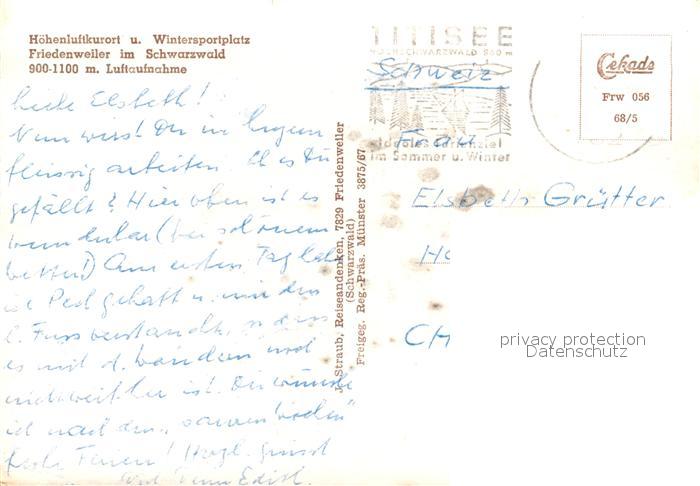 Höhenluftkurort u. Wintersportplatz
Friedenweiler im Schwarzwald
900-1100 m. Luftaufnahme
Liebe Elsbeth!
Nun wirst Du in
fleissig arbeiten. Ob es Dir
gefällt? Hier oben ist es
wunderbar (bei schönem
Wetter!) Am ersten Tag habe
ich Pech gehabt u. mir den
l. Fuss verstaucht, sodass
es mit d. Wandern und
nicht weit her ist. Dir wünsche
ich nach den „sauren Wochen"
frohe Ferien! Herzl. Grüsst
J. Straub, Reiseandenken, 7829 Friedenweiler
(Schwarzwald)
Freigeg. Reg.-Präs. Münster 3875/67
TITISEE
HOCHSCHWARZWALD 860 m
Ideales Ferienziel
im Sommer u. Winter
Cekade
Frw 056
68/5
Schweiz
Elsbeth Grütter
CH
privacy protection
Datenschutz